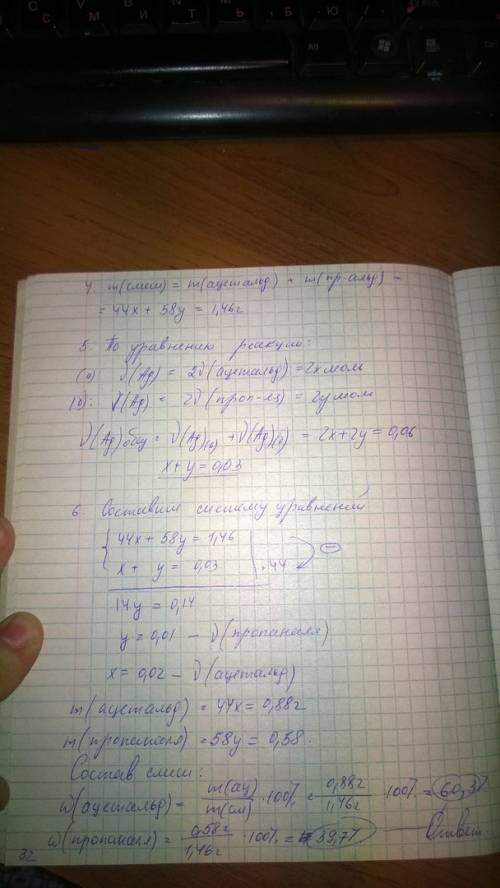 Alt
4. m(смеси) = m(ацетальд) + m(пр-альд) =
= 44x + 58y = 1,46г
5. По уравнению реакции:
(а): ν(Ag) = 2ν(ацетальд) = 2x моль
(б): ν(Ag) = 2ν(проп-ля) = 2y моль
ν(Ag)общ = ν(Ag)(а) + ν(Ag)(б) = 2x+2y = 0,06
x+y = 0,03
6. Составим систему уравнений
44x + 58y = 1,46
x + y = 0,03 | ·44 ⊖
14y = 0,14
y = 0,01 – ν(пропаналя)
x = 0,02 – ν(ацетальд)
m(ацетальд) = 44x = 0,88г
m(пропаналя) = 58y = 0,58.
Состав смеси:
W(ацетальд) = m(ац)/m(см) ·100% = 0,88г/1,46г ·100% = 60,3%
W(пропаналя) = 0,58г/1,46г ·100% = 39,7% — Ответ
32